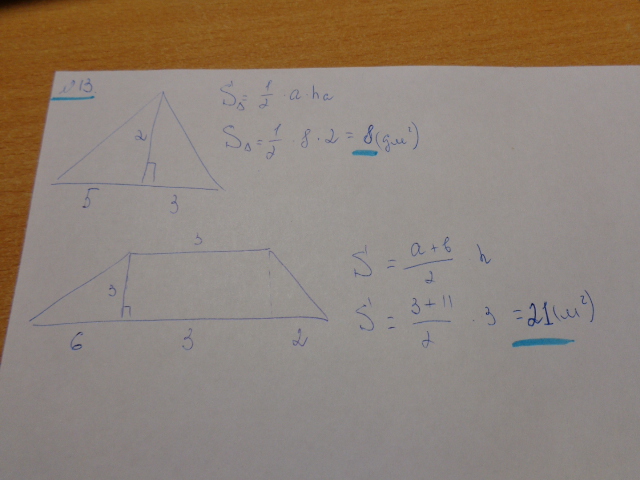 №13
S△ = 1/2 · a ha
S△ = 1/2 · 8 · 2 = 8 (дм²)
2
5 3
3
3
6 3 2
S = a+b/2 h
S = 3+11/2 · 3 = 21 (м²)